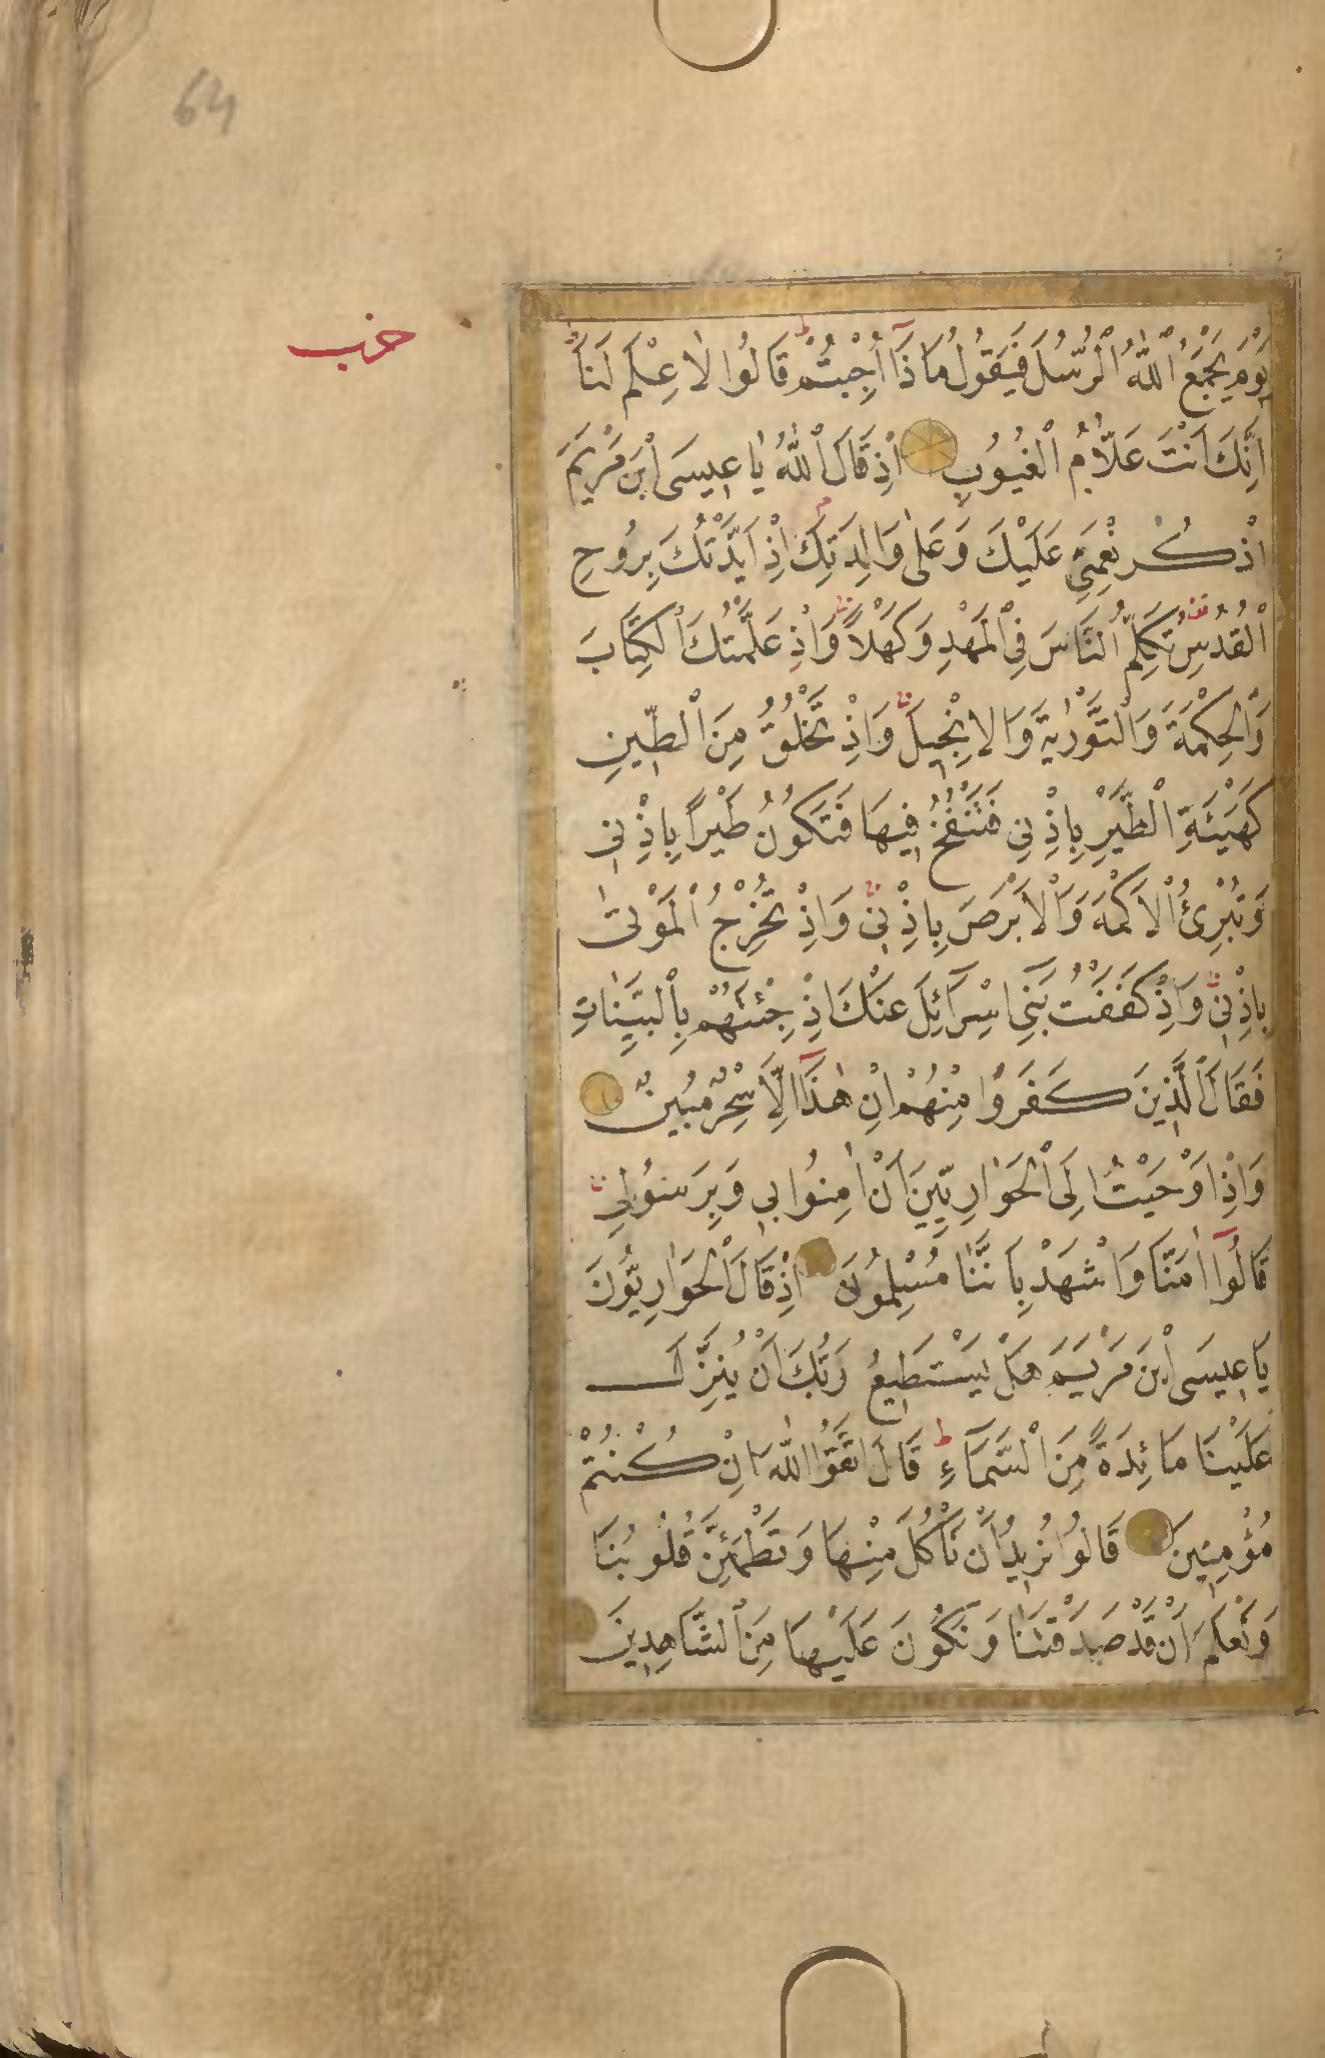 64
حزب
يَوْمَ يَجْمَعُ اْللّٰهُ اْلرُّسُلَ فَيَقُولُ مَاذَٓا اُجِبْتُمْ ط قَالُوا لَا عِلْمَ لَنَا
اِنَّكَ اَنْتَ عَلَّامُ اْلغُيُوبِ اْذِ قَالَ اْللّٰهُ يَا عِيسَى اْبْنَ مَرْيَمَ
اذْكُرْ نِعْمَتِى عَلَيْكَ وَعَلٰى وَالِدَتِكَ م اِذْ اَيَّدْتُكَ بِرُوحِ
اْلقُدُسِ تُكَلِّمُ اْلنَّاسَ فِى اْلمَهْدِ وَكَهْلاً وَاِذْ عَلَّمْتُكَ اْلكِتَابَ
وَاْلحِكْمَةَ وَاْلتَّوْرٰيةَ وَالاِنْجِيلَ وَاِذْ تَخْلُقُ مِنَ اْلطِّينِ
كَهَيْئَةِ اْلطَّيْرِ بِاِذْنِى فَتَنْفُخُ فِيهَا فَتَكُونُ طَيْراً بِاِذْنِى
وَتُبْرِئُ اْلاَكْمَهَ وَاْلاَبْرَصَ بِاِذْنِى وَاِذْ تُخْرِجُ اْلمَوْتٰى
بِاِذْنِى وَاِذْ كَفَفْتُ بَنِى اِسْرَٓائِلَ عَنْكَ اِذْ جِئْتَهُمْ بِاْلبَيِّنَاتِ
فَقَالَ اْلَّذِينَ كَفَرُوا مِنْهُمْ اِنْ هٰذَٓا اِلَّا سِحْرٌ مُبِينٌ
وَاِذْ اَوْحَيْتُ اِلَى اْلحَوَارِيِّينَ اَنْ اٰمِنُوا بِى وَبِرَسُولِى
قَالُوٓا اٰمَنَّا وَاشْهَدْ بِاَنَّنَا مُسْلِمُونَ اِذْ قَالَ اْلحَوَارِيُّونَ
يَا عِيسَى اْبْنَ مَرْيَمَ هَلْ يَسْتَطِيعُ رَبُّكَ اَنْ يُنَزِّلَ
عَلَيْنَا مَائِدَةً مِنَ اْلسَّمَٓاءِ ط قَالَ اتَّقُوا اللّٰهَ اِنْ كُنْتُمْ
مُؤْمِنِينَ قَالُوا نُرِيدُ اَنْ نَأْكُلَ مِنْهَا وَتَطْمَئِنَّ قُلُوبُنَا
وَنَعْلَمَ اَنْ قَدْ صَدَقْتَنَا وَنَكُونَ عَلَيْهَا مِنَ اْلشَّاهِدِينَ